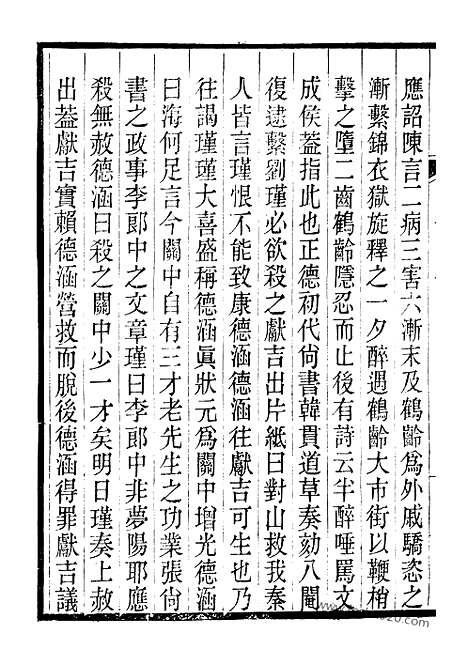 應詔陳言二病三害六漸末及鶴齡爲外戚驕恣之
漸繫錦衣獄旋釋之一夕醉遇鶴齡大市街以鞭梢
擊之墮二齒鶴齡隱忍而止後有詩云半醉唾罵文
成侯葢指此也正德初代尙書韓貫道草奏劾八閹
復逮繫劉瑾必欲殺之獻吉出片紙曰對山救我秦
人皆言瑾恨不能致康德涵德涵往獻吉可生也乃
往謁瑾瑾大喜盛稱德涵眞狀元爲關中增光德涵
曰海何足言今關中自有三才老先生之功業張尙
書之政事李郞中之文章瑾曰李郞中非夢陽耶應
殺無赦德涵曰殺之關中少一才矣明日瑾奏上赦
出葢獻吉實賴德涵營救而脫後德涵得罪獻吉議